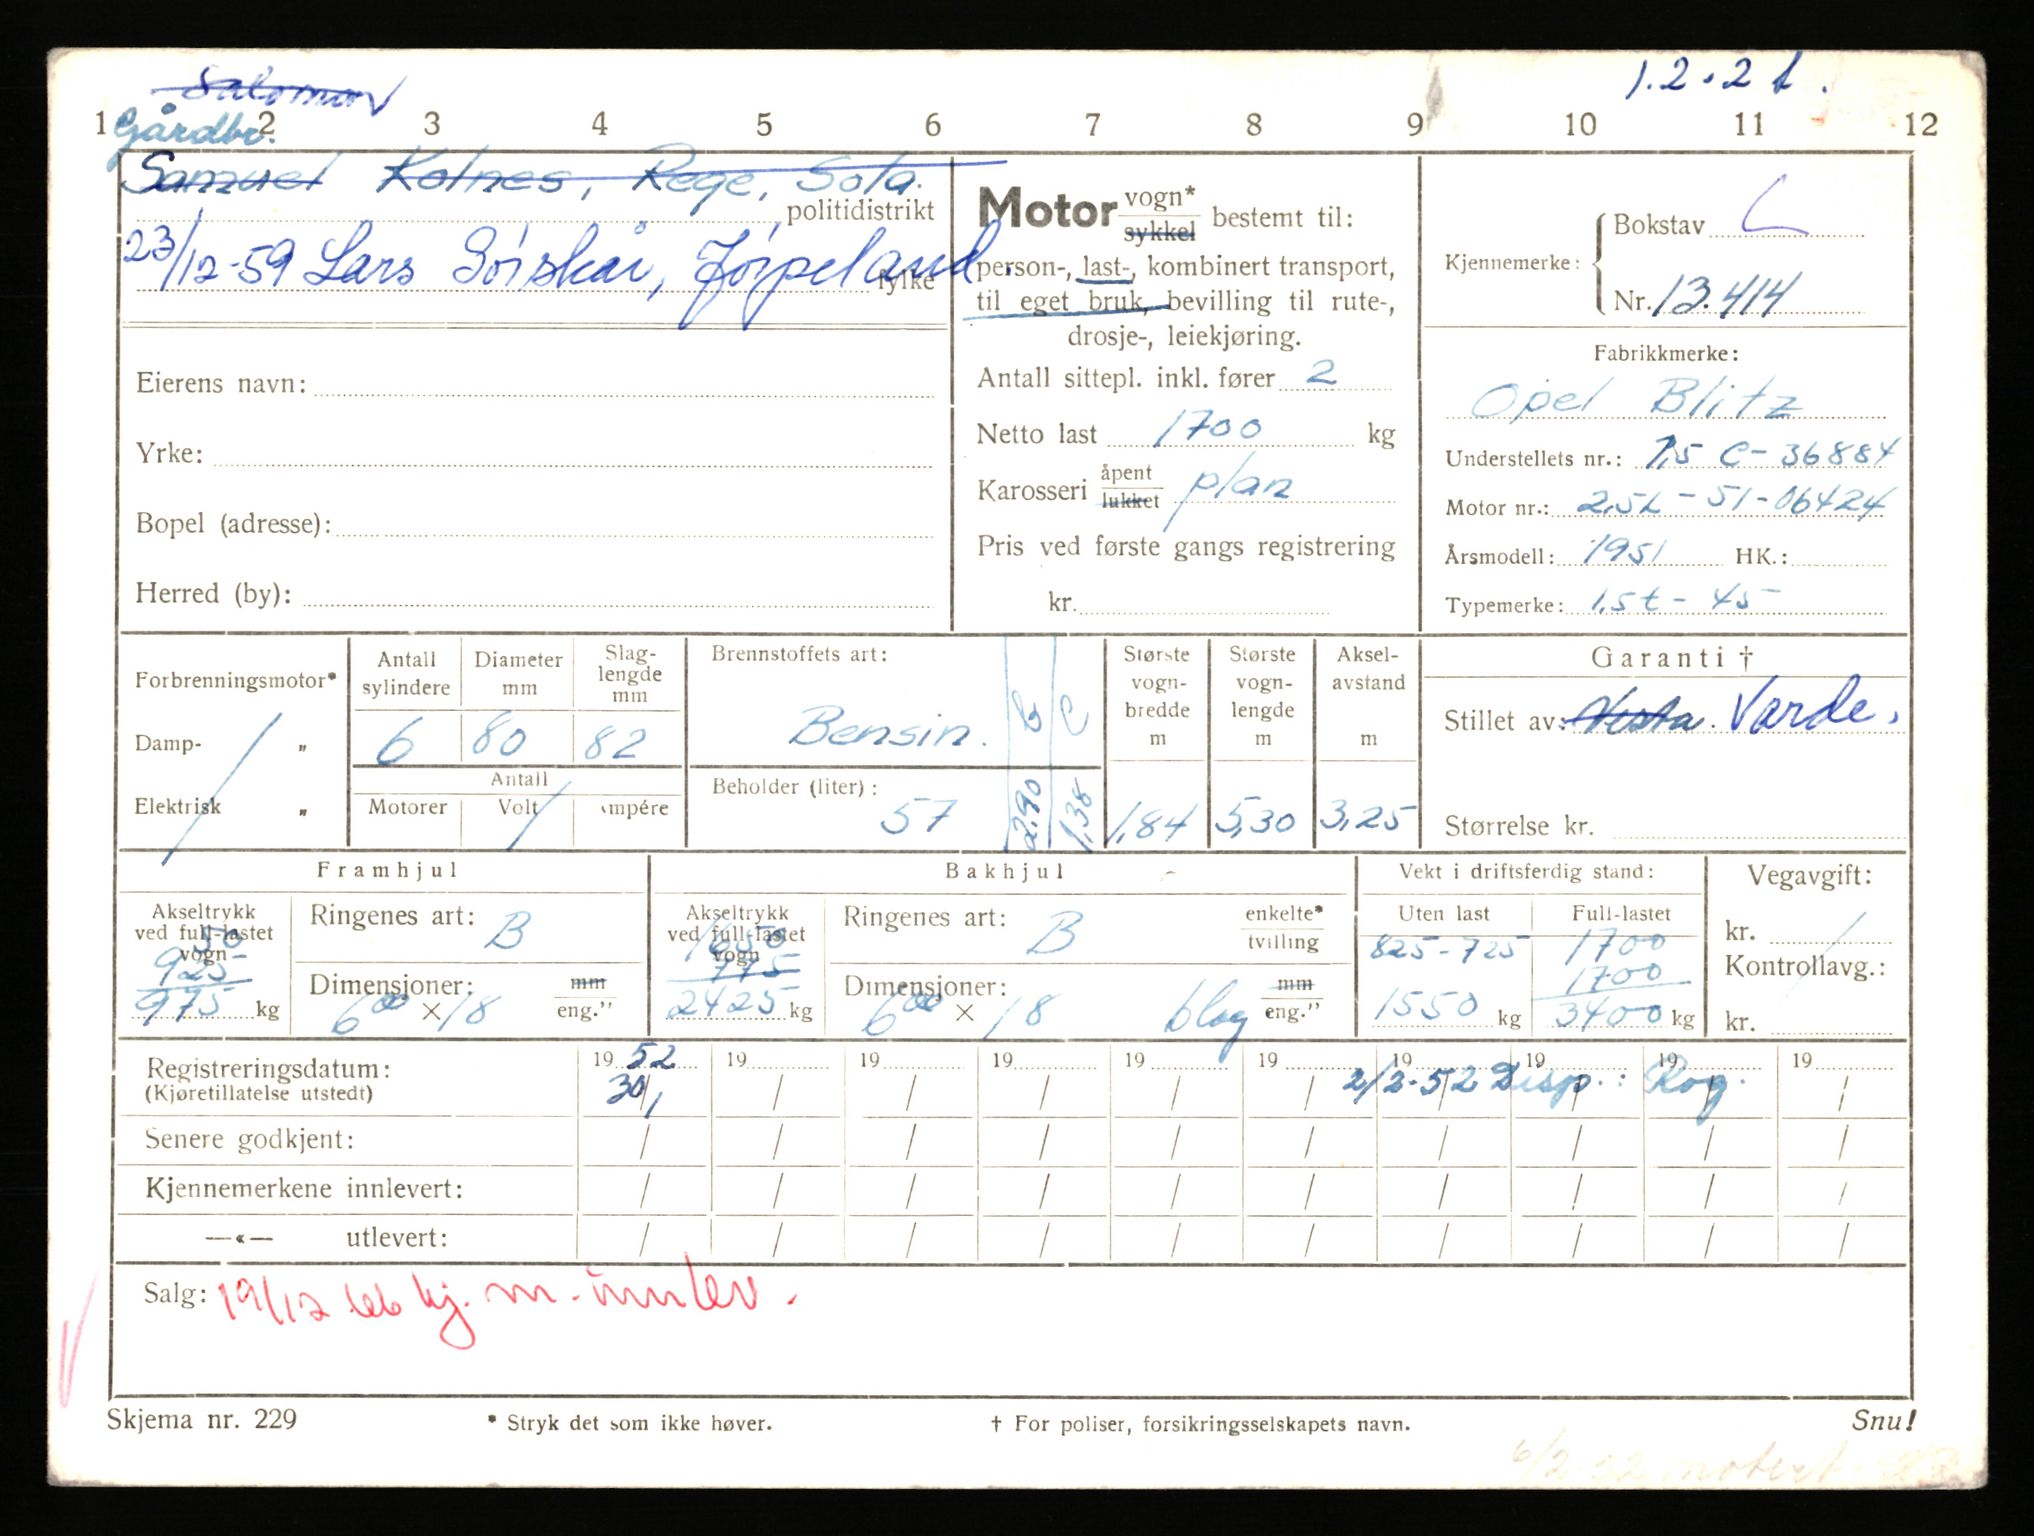 Salomon
1.2.21.
1 2 3 4 5 6 7 8 9 10 11 12
Gårdbr.
Samuel Kolnes, Rege, Sola.
politidistrikt
23/12-59 Lars Jørpeland
fylke
Eierens navn:
Yrke:
Bopel (adresse):
Herred (by):
Motor vogn* sykkel bestemt til:
person-, last-, kombinert transport,
til eget bruk, bevilling til rute-,
drosje-, leiekjøring.
Antall sittepl. inkl. fører 2
Netto last 1700 kg
Karosseri åpent lukket plan
Pris ved første gangs registrering
kr.
Kjennemerke: Bokstav L
Nr. 13.414
Fabrikkmerke:
Opel Blitz
Understellets nr.: 1,5 C-36884
Motor nr.: 2,5L-51-06424
Årsmodell: 1951 HK.:
Typemerke: 1,5t-45
Forbrenningsmotor*
Damp- „
Elektrisk „
Antall sylindere
Diameter mm
Slaglengde mm
6 80 82
Antall
Motorer Volt Ampére
Brennstoffets art:
Bensin.
Beholder (liter):
57
b 2,90
C 1,38
Største vogn-bredde m
1,84
Største vogn-lengde m
5,30
Aksel-avstand m
3,25
Garanti †
Stillet av: Vesta. Varde.
Størrelse kr.
Framhjul
Akseltrykk ved full-lastet vogn
925
50
975 kg
Ringenes art: B
Dimensjoner: mm eng."
6⁰⁰ × 18
Bakhjul
Akseltrykk ved full-lastet vogn
1650
775
2425 kg
Ringenes art: B enkelte* tvilling
Dimensjoner: mm eng."
6⁰⁰ × 18 blag
Vekt i driftsferdig stand:
Uten last Full-lastet
825-725 1700
1700
1550 kg 3400 kg
Vegavgift:
kr.
Kontrollavg.:
kr.
Registreringsdatum: 19 52 19 19 19 19 19 19 19 19 19
(Kjøretillatelse utstedt) 30/1 2/2-52 Disp.: Rog.
Senere godkjent:
Kjennemerkene innlevert:
—«— utlevert:
Salg: 19/12 66 kj.m. innlev.
Skjema nr. 229 * Stryk det som ikke høver. † For poliser, forsikringsselskapets navn. Snu!
6/2-52 notert